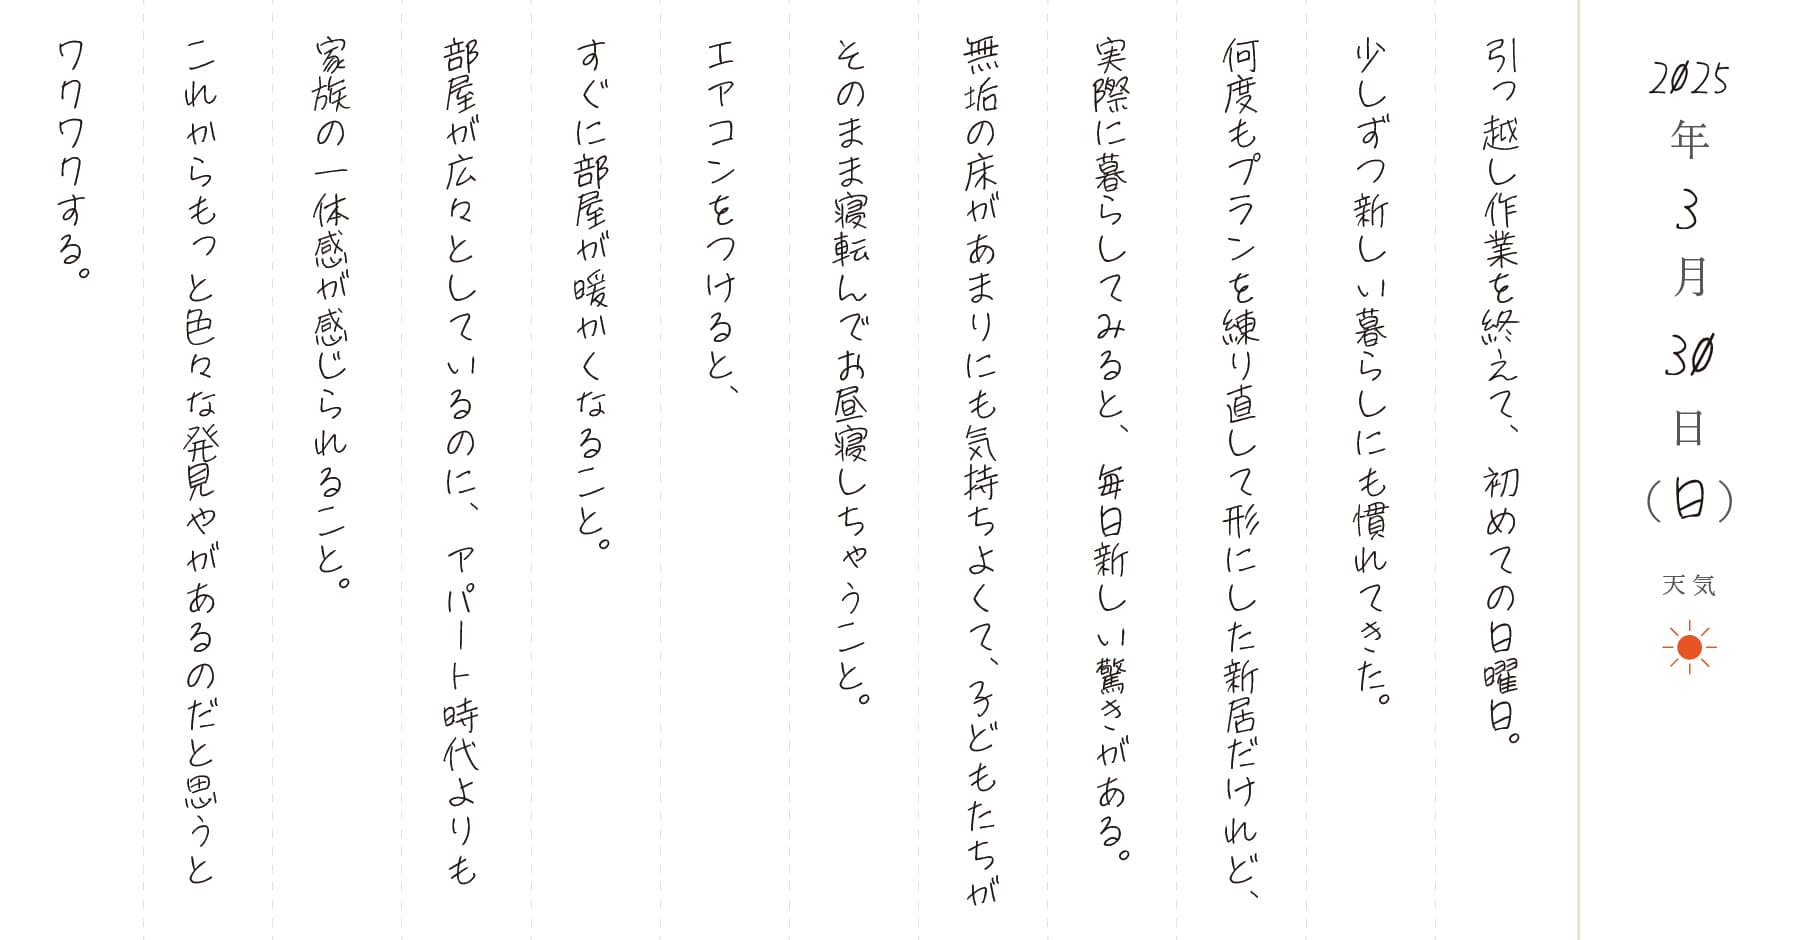 2025年3月30日(日)
天気
引っ越し作業を終えて、初めての日曜日。
少しずつ新しい暮らしにも慣れてきた。
何度もプランを練り直して形にした新居だけれど、
実際に暮らしてみると、毎日新しい驚きがある。
無垢の床があまりにも気持ちよくて、子どもたちが
そのまま寝転んでお昼寝しちゃうこと。
エアコンをつけると、
すぐに部屋が暖かくなること。
部屋が広々としているのに、アパート時代よりも
家族の一体感が感じられること。
これからもっと色々な発見やがあるのだと思うと
ワクワクする。